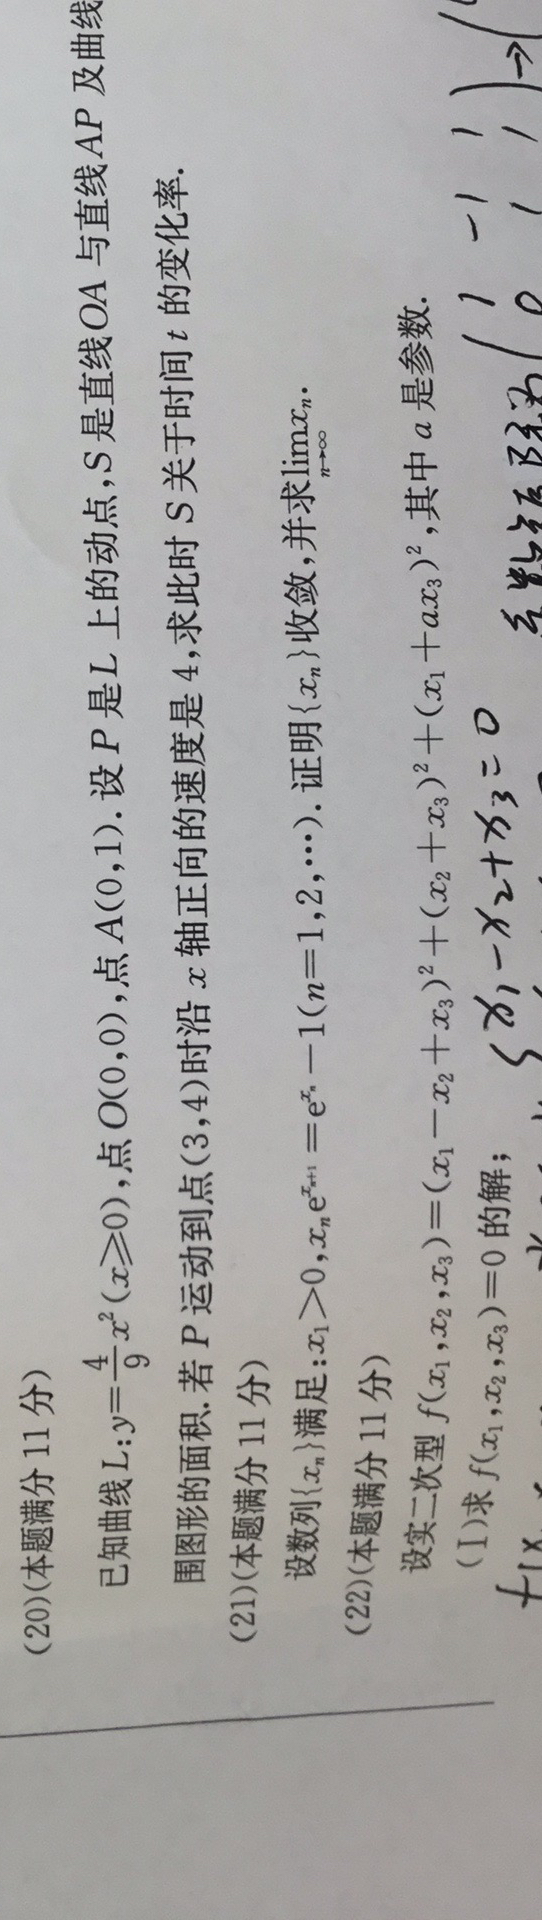 (20)(本题满分 11 分)
已知曲线 L:y=4/9x²(x≥0),点 O(0,0),点 A(0,1).设 P 是 L 上的动点,S 是直线 OA 与直线 AP 及曲线
围图形的面积.若 P 运动到点(3,4)时沿 x 轴正向的速度是 4,求此时 S 关于时间 t 的变化率.
(21)(本题满分 11 分)
设数列{xₙ}满足:x₁>0,xₙe^{xₙ₊₁}=e^{xₙ}-1(n=1,2,⋯).证明{xₙ}收敛,并求lim_{n→∞}xₙ.
(22)(本题满分 11 分)
设实二次型 f(x₁,x₂,x₃)=(x₁-x₂+x₃)²+(x₂+x₃)²+(x₁+ax₃)²,其中 a 是参数.
(Ⅰ)求 f(x₁,x₂,x₃)=0 的解;
x₁-x₂+x₃=0